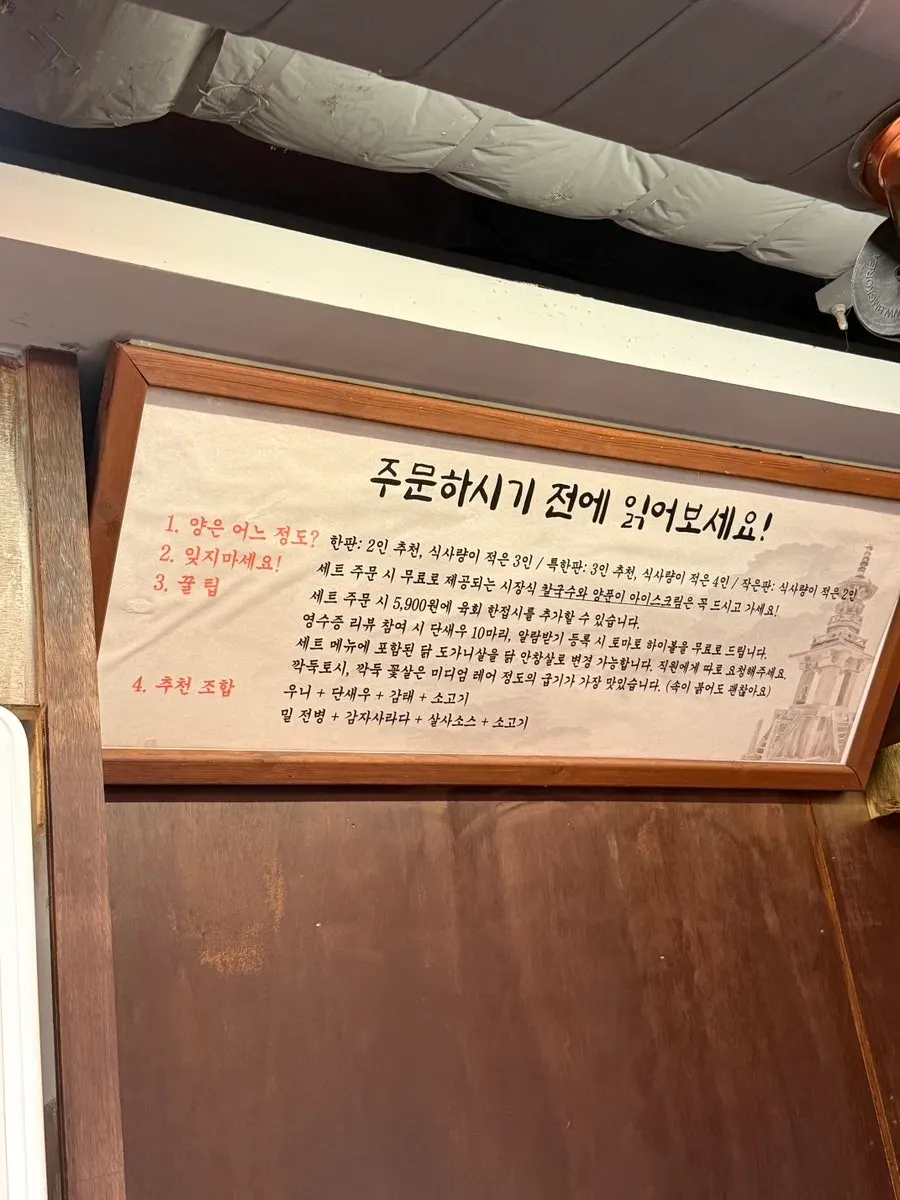 주문하시기 전에 읽어보세요!
1. 양은 어느 정도? 한판: 2인 추천, 식사량이 적은 3인 / 특한판: 3인 추천, 식사량이 적은 4인 / 작은판: 식사량이 적은 2인
2. 잊지마세요! 세트 주문 시 무료로 제공되는 시장식 칼국수와 양푼이 아이스크림은 꼭 드시고 가세요!
3. 꿀 팁 세트 주문 시 5,900원에 육회 한접시를 추가할 수 있습니다.
영수증 리뷰 참여 시 단새우 10마리, 알람받기 등록 시 토마토 하이볼을 무료로 드립니다.
세트 메뉴에 포함된 닭 도가니살을 닭 안창살로 변경 가능합니다. 직원에게 따로 요청해주세요.
깍둑토시, 깍둑 꽃살은 미디엄 레어 정도의 굽기가 가장 맛있습니다. (속이 붉어도 괜찮아요)
4. 추천 조합 우니 + 단새우 + 감태 + 소고기
밀 전병 + 감자사라다 + 살사소스 + 소고기
KOREA